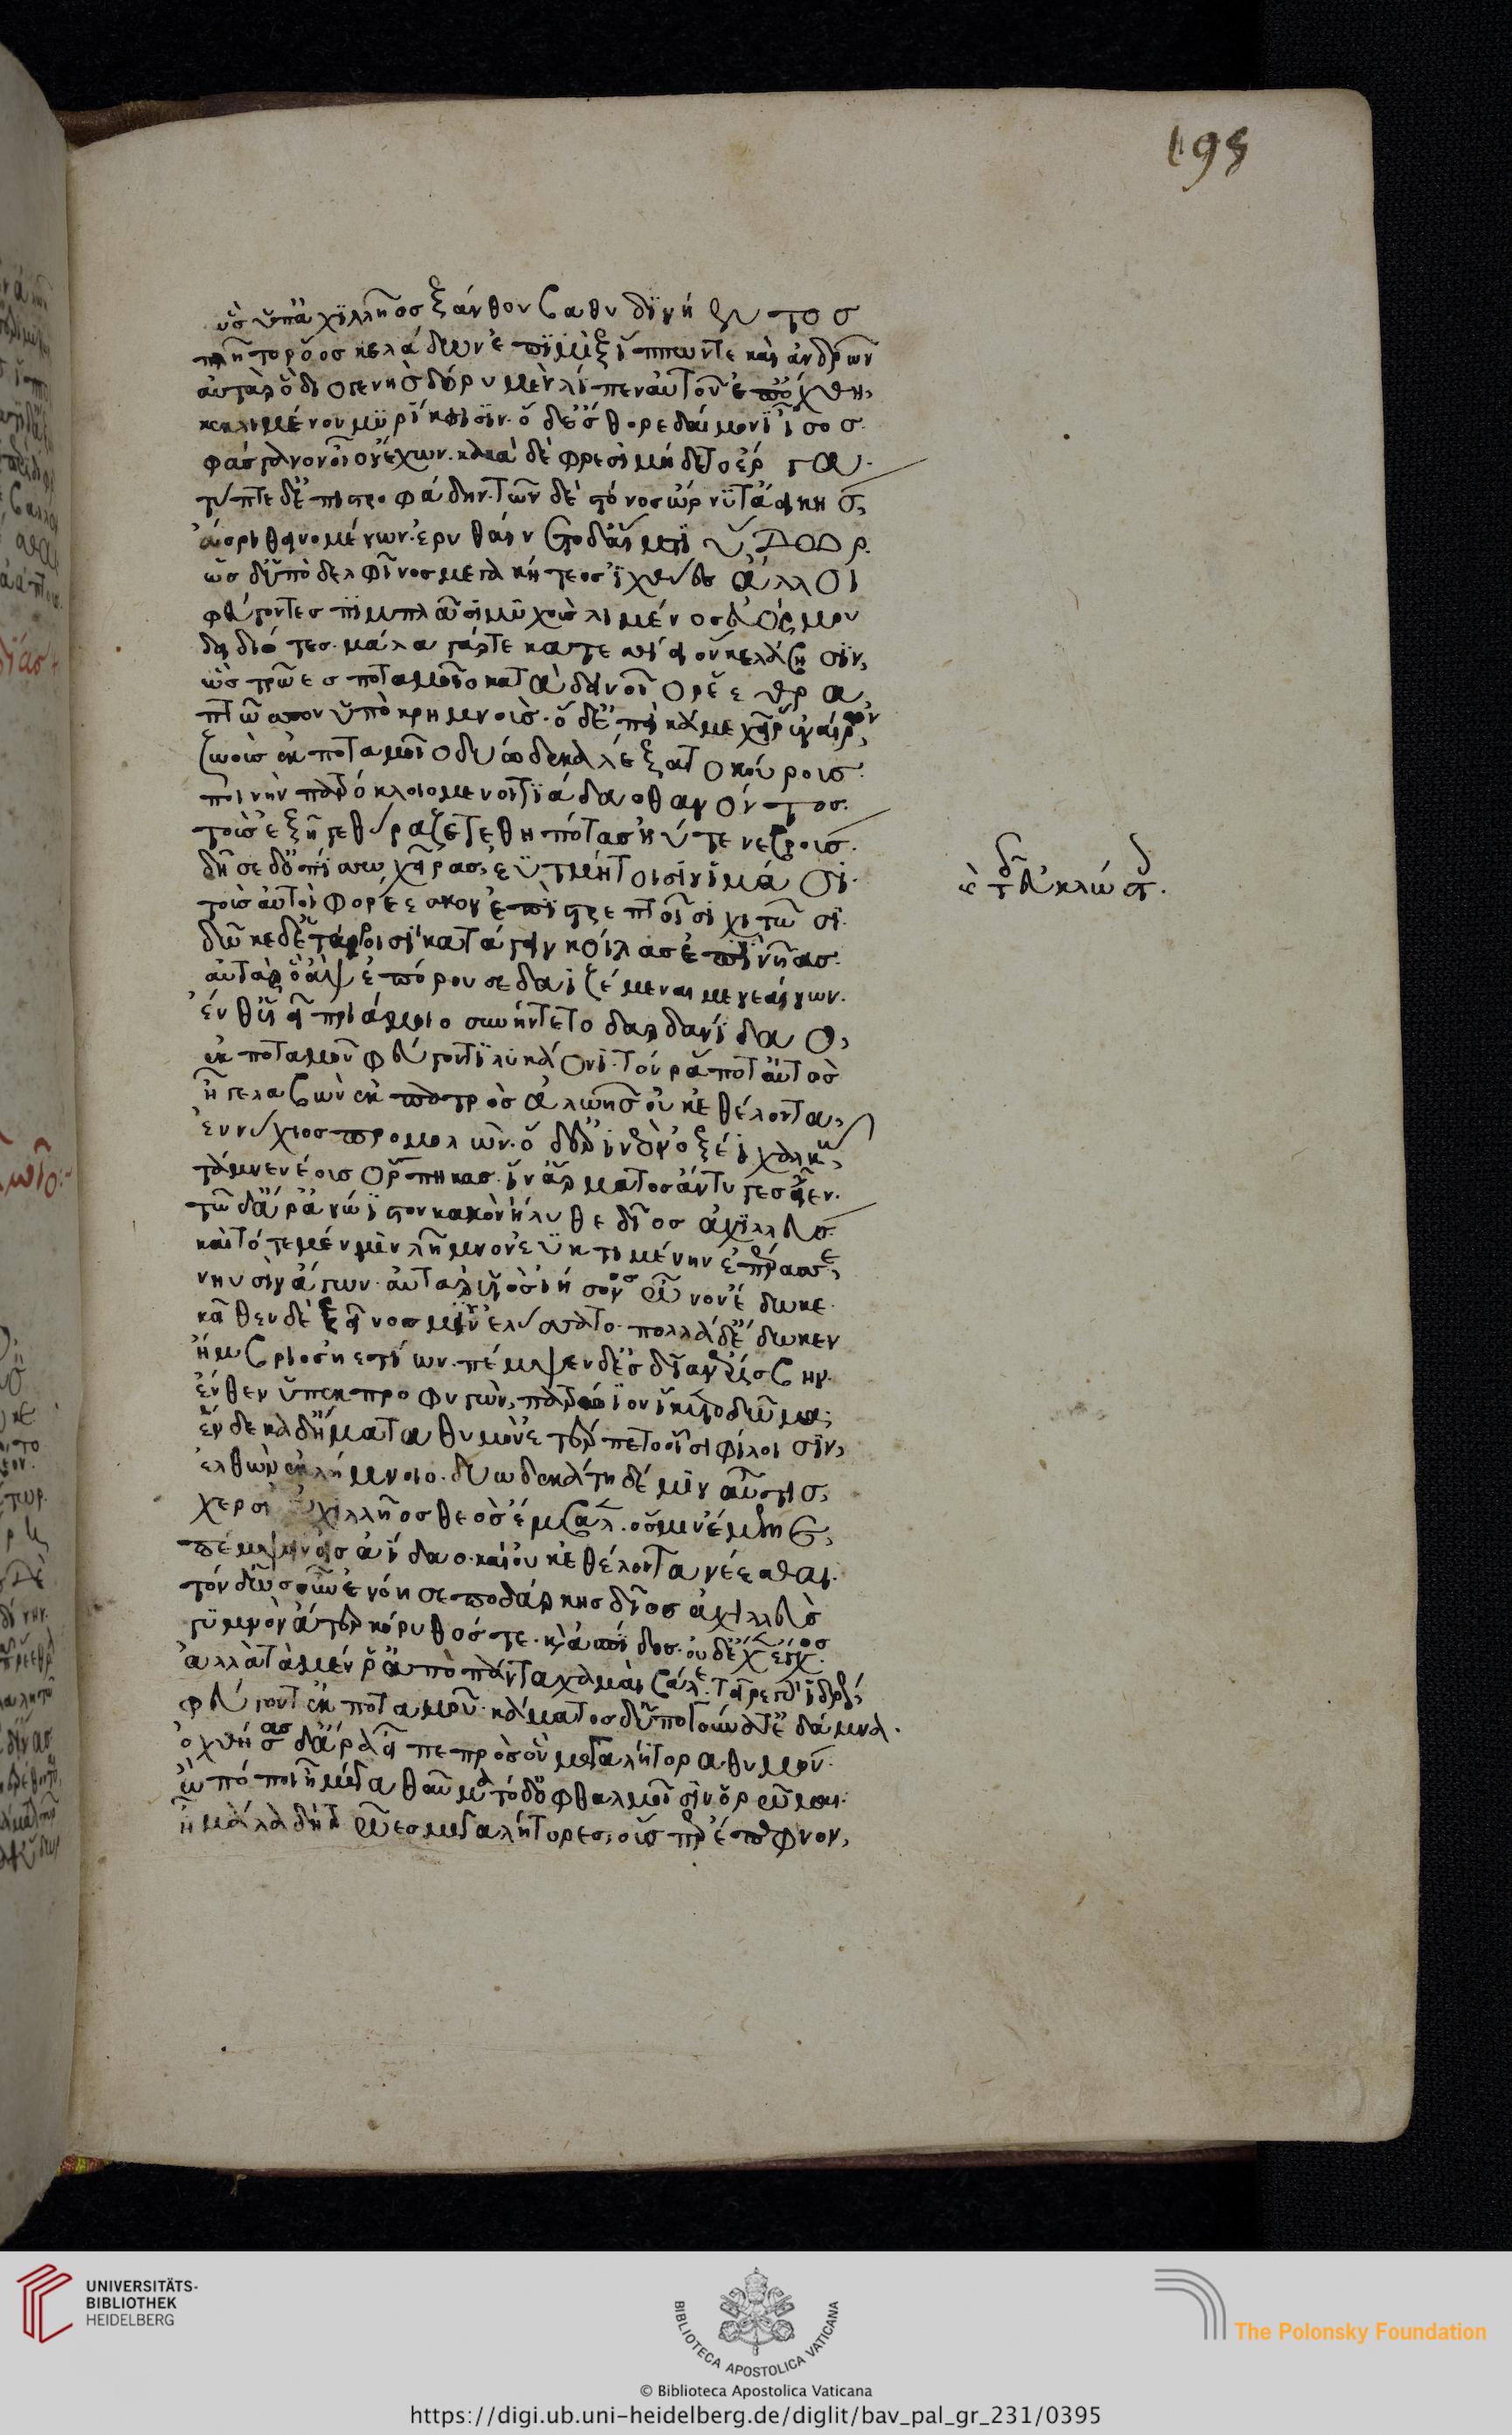 195
ὣς ὑπ' ἀχιλλῆος ξάνθου βαθυδινήεντος
πλῆτο ῥόος κελάδων ἐπιμὶξ ἵππων τε καὶ ἀνδρῶν
αὐτὰρ ὃ διογενὴς δόρυ μὲν λίπεν αὐτοῦ ἐπ' ὄχθη,
κεκλιμένον μυρίκησιν. ὃ δ' ἔσθορε δαίμονι ἶσος.
φάσγανον οἶον ἔχων. κακὰ δὲ φρεσὶ μήδετο ἔργα.
τύπτε δ' ἐπιστροφάδην. τῶν δὲ στόνος ὤρνυτ' ἀεικὴς,
ἄορι θεινομένων. ἐρυθαίνετο δ' αἵματι ὕδωρ.
ὡς δ' ὑπὸ δελφῖνος μεγακήτεος ἰχθύες ἄλλοι
φεύγοντες πιμπλᾶσι μυχοὺς λιμένος εὐόρμου
δειδιότες. μάλα γάρ τε κατεσθίει ὅν κε λάβησιν,
ὣς τρῶες ποταμοῖο κατὰ δεινοῖο ῥέεθρα
πτῶσσον ὑπὸ κρημνούς. ὃ δ' ἐπεὶ κάμε χεῖρας ἐναίρων,
ζωοὺς ἐκ ποταμοῖο δυώδεκα λέξατο κούρους.
ποινὴν πατρόκλοιο μενοιτιάδαο θανόντος.
τοὺς ἐξῆγε θύραζε τεθηπότας ἠύτε νεβρούς.
δῆσε δ' ὀπίσσω χεῖρας, ἐυτμήτοισιν ἱμᾶσι.
τοὺς αὐτοὶ φορέεσκον ἐπὶ στρεπτοῖσι χιτῶσι.
δῶκε δ' ἑτάροισι κατάγειν κοίλας ἐπὶ νῆας.
αὐτὰρ ὃ ἂψ ἐπόρουσε δαϊζέμεναι μενεαίνων.
ἔνθ' υἷι πριάμοιο συνήντετο δαρδανίδαο,
ἐκ ποταμοῦ φεύγοντι λυκάονι. τόν ῥά ποτ' αὐτὸς
ἦγε λαβὼν ἐκ πατρὸς ἀλωῆς οὐκ ἐθέλοντα,
ἐννύχιος προμολών. ὃ δ' ἐρινεὸν ὀξέι χαλκῷ,
τάμνε νέους ὄρπηκας. ἵν' ἅρματος ἄντυγες εἶεν.
τῷ δ' ἄρ' ἀνώιστον κακὸν ἤλυθε δῖος ἀχιλλεύς.
καὶ τότε μέν μιν λῆμνον ἐυκτιμένην ἐπέρασσε,
νηυσὶν ἄγων. ἀτὰρ υἱὸς ἰήσονος ὦνον ἔδωκε.
κεῖθεν δὲ ξεῖνος μιν ἐλύσατο. πολλὰ δ' ἔδωκεν
ἴμβριος ἠετίων. πέμψεν δ' ἐς δῖαν ἀρίσβην.
ἔνθεν ὑπεκπροφυγὼν, πατρώιον ἵκετο δῶμα;
ἕνδεκα δ' ἤματα θυμὸν ἐτέρπετο οἷσι φίλοισιν,
ἐλθὼν ἐκ λήμνοιο. δυωδεκάτη δέ μιν αὖτις,
χερσὶν ἀχιλλῆος θεὸς ἔμβαλ. ὅς μιν ἔμελλε,
πέμψειν εἰς ἀίδαο. καὶ οὐκ ἐθέλοντα νέεσθαι.
τὸν δ' ὡς οὖν ἐνόησε ποδάρκης δῖος ἀχιλλεὺς
γυμνὸν ἄτερ κόρυθός τε. καὶ ἀσπίδος. οὐδ' ἔχεν ἔγχος.
ἀλλὰ τὰ μέν ῥ' ἀπὸ πάντα χαμαὶ βάλε. τεῖρε γὰρ ἱδρὼς,
φεύγοντ' ἐκ ποταμοῦ. κάματος δ' ὑπὸ γούνατ' ἐδάμνα.
ὀχθήσας δ' ἄρα εἶπε πρὸς ὃν μεγαλήτορα θυμόν.
ὢ πόποι ἦ μέγα θαῦμα τόδ' ὀφθαλμοῖσιν ὁρῶμαι.
ἦ μάλα δὴ τρῶες μεγαλήτορες, οὕς περ ἔπεφνον,
UNIVERSITÄTS-
BIBLIOTHEK
HEIDELBERG
BIBLIOTECA APOSTOLICA VATICANA
The Polonsky Foundation
© Biblioteca Apostolica Vaticana
https://digi.ub.uni-heidelberg.de/diglit/bav_pal_gr_231/0395